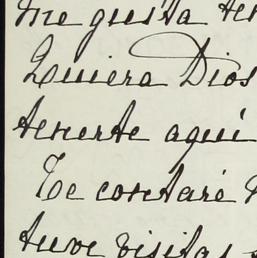 me gusta ten
Quiera Dios
tenerte aquí
Te contaré
tuve visitas